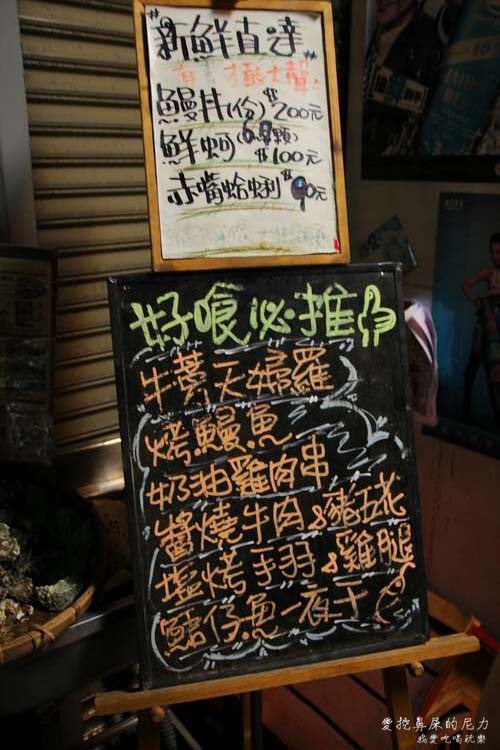 新鮮直達
有 極大聲
鰻片(份)$200元
鮮蚵(6.8顆)
$100元
赤嘴蛤蜊$90元
好喰必推
牛蒡天婦羅
烤鰻魚
奶油雞肉串
醬燒牛肉&豬五花
塩烤手羽&雞腿
鯧仔魚一夜干
愛挖鼻屎的尼力
我愛吃喝玩樂